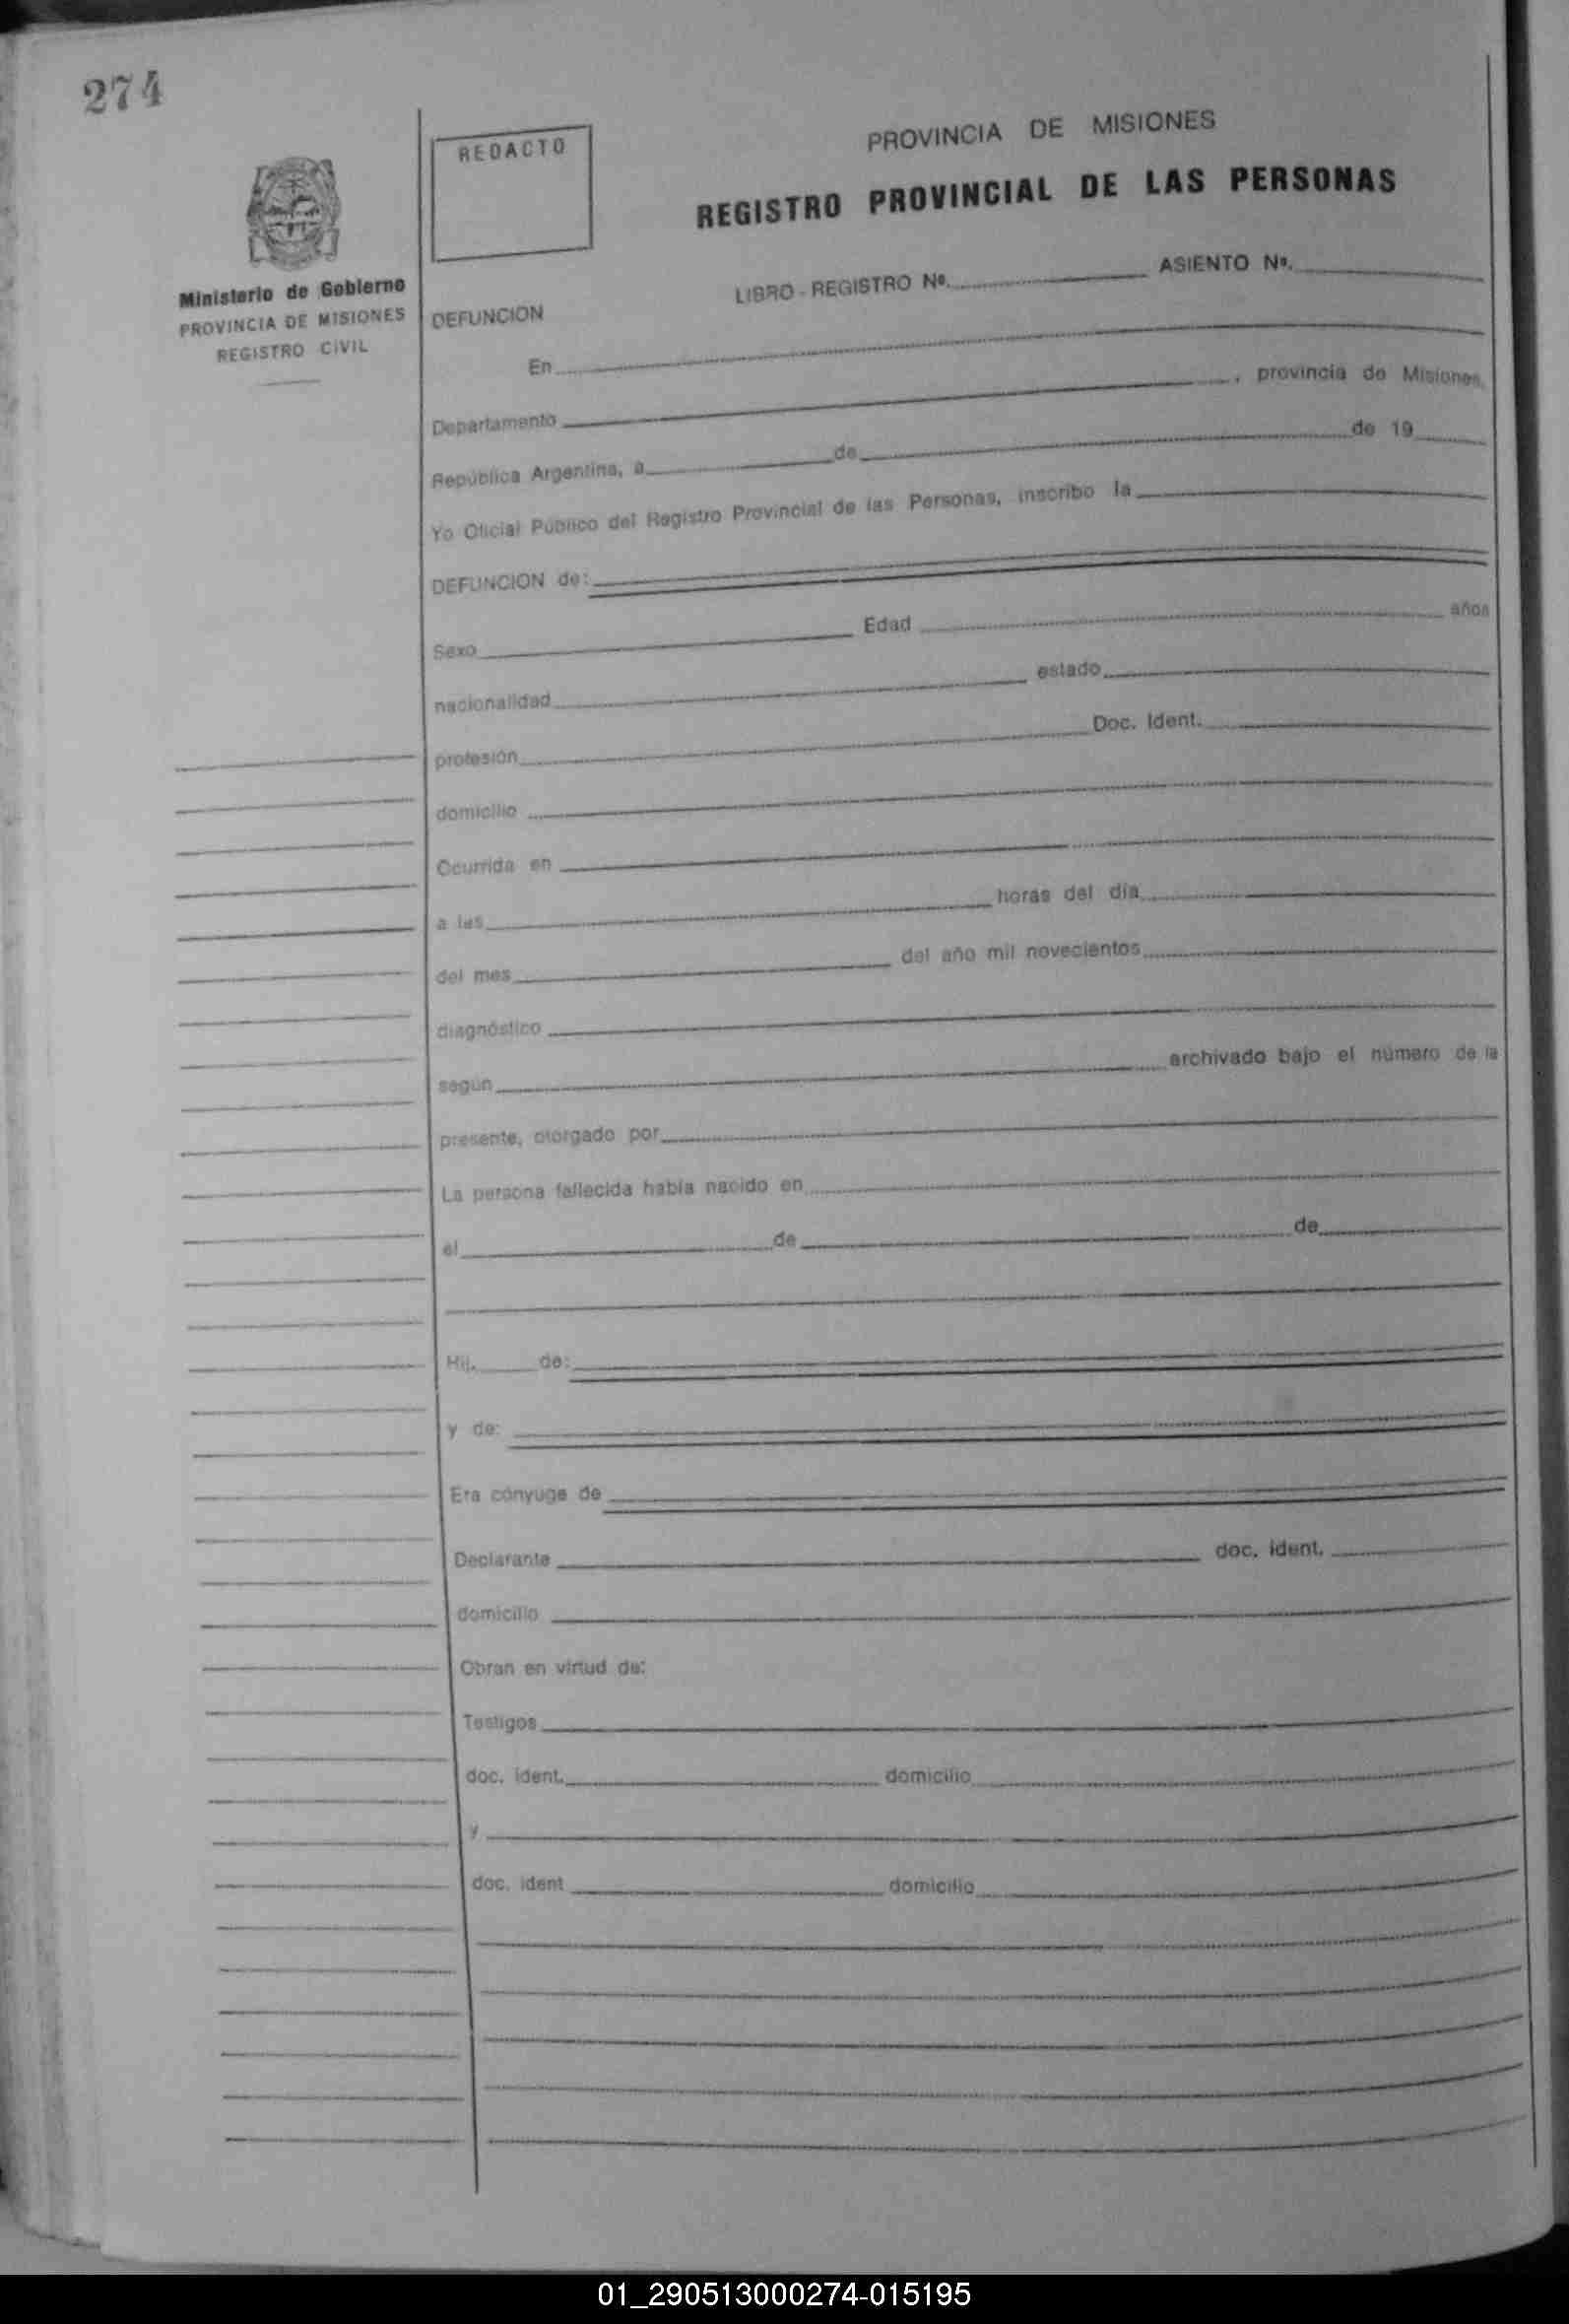 274
REDACTO
PROVINCIA DE MISIONES
REGISTRO PROVINCIAL DE LAS PERSONAS
Ministerio de Gobierno
PROVINCIA DE MISIONES
REGISTRO CIVIL
LIBRO - REGISTRO Nº. ASIENTO Nº.
DEFUNCION
En
Departamento , provincia de Misiones,
República Argentina, a de de 19
Yo Oficial Público del Registro Provincial de las Personas, inscribo la
DEFUNCION de:
Sexo Edad años
nacionalidad estado
profesión Doc. Ident.
domicilio
Ocurrida en
a las horas del día
del mes del año mil novecientos
diagnóstico
según archivado bajo el número de la
presente, otorgado por
La persona fallecida había nacido en
el de de
Hij. de:
y de:
Era cónyuge de
Declarante doc. ident.
domicilio
Obran en virtud de:
Testigos
doc. ident. domicilio
y
doc. ident domicilio
01_290513000274-015195